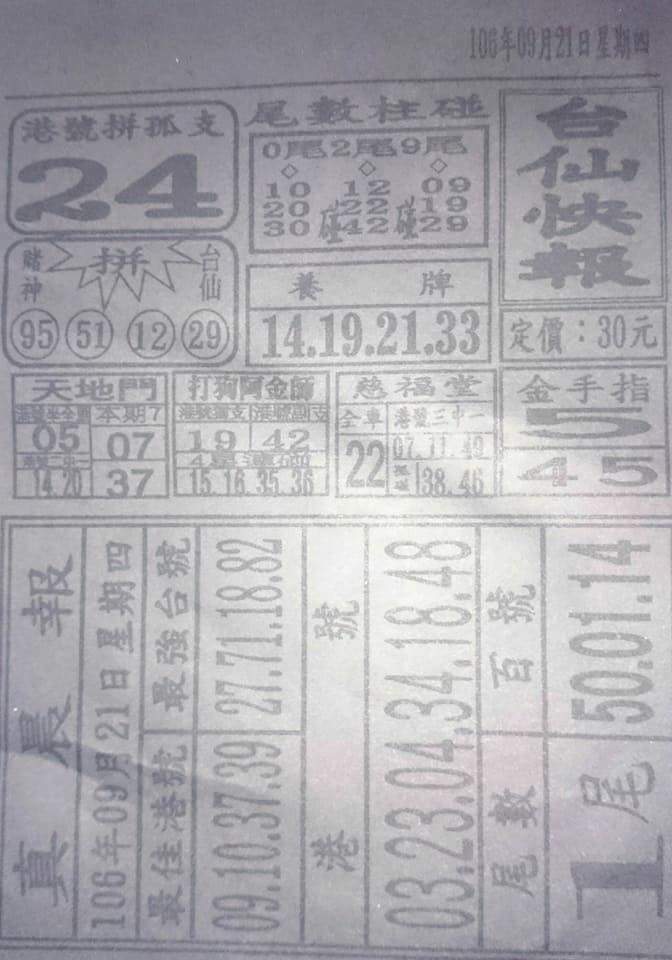 106年09月21日星期四
台仙快報
定價：30元
尾數柱碰
0尾2尾9尾
10 12 09
20碰22碰19
30 42 29
港號拼孤支
24
賭神 拼 台仙
95 51 12 29
養 牌
14.19.21.33
天地門
本期7
05 07
14.20 37
打狗阿金師
港號獨支 港號副支
19 42
15.16.35.36
慈福堂
全車 港號三中一
22 07.11.49
38.46
金手指
5
45
真晨報
106年09月21日星期四
最佳港號 最強台號
09.10.37.39 27.71.18.82
港 號
03.23.04.34.18.48
尾數 百號
1尾 50.01.14